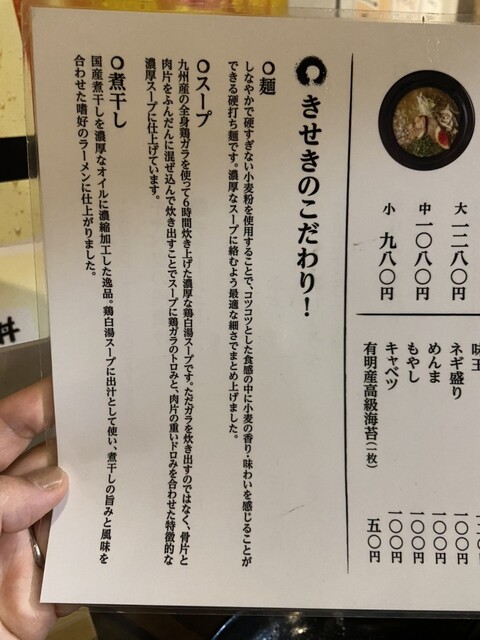 大 一二八〇円
中 一〇八〇円
小 九八〇円
味玉
ネギ盛り 一〇〇円
めんま 一〇〇円
もやし 一〇〇円
キャベツ 一〇〇円
有明産高級海苔(一枚) 五〇円
きせきのこだわり!
○麺
しなやかで硬すぎない小麦粉を使用することで、コツコツとした食感の中に小麦の香り・味わいを感じることが
できる硬打ち麺です。濃厚なスープに絡むよう最適な細さでまとめ上げました。
○スープ
九州産の全身鶏ガラを使って6時間炊き上げた濃厚な鶏白湯スープです。ただガラを炊き出すのではなく、骨片と
肉片をふんだんに混ぜ込んで炊き出すことでスープに鶏ガラのトロみと、肉片の重いドロみを合わせた特徴的な
濃厚スープに仕上げています。
○煮干し
国産煮干しを濃厚なオイルに濃縮加工した逸品。鶏白湯スープに出汁として使い、煮干しの旨みと風味を
合わせた嗜好のラーメンに仕上がりました。
丼